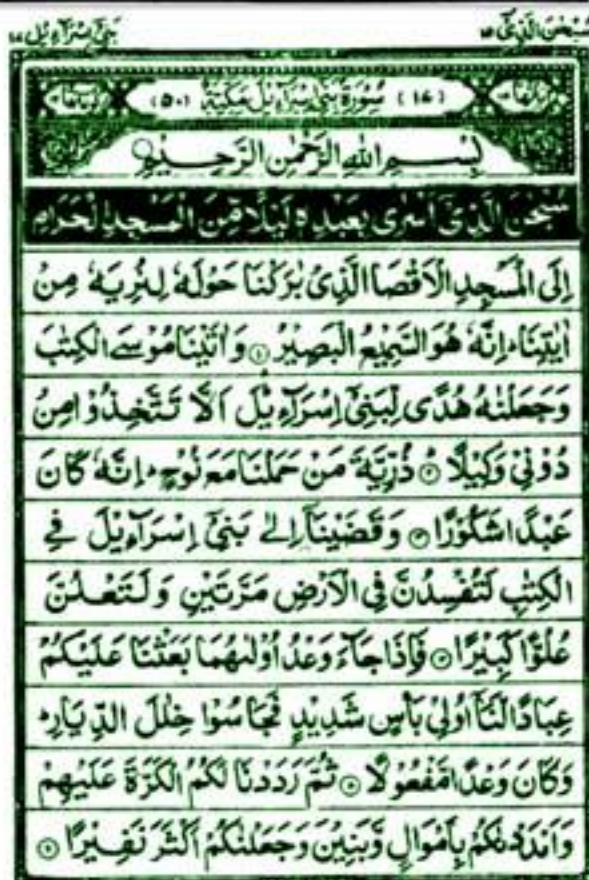 سُبْحٰنَ الَّذِیْۤ ۱۵ بَنِیْۤ اِسْرَآءِیْل ۱۷
(۱۷) سُوْرَةُ بَنِیْۤ اِسْرَآءِیْلَ مَكِّیَّةٌ (۵۰)
بِسْمِ اللّٰهِ الرَّحْمٰنِ الرَّحِیْمِ
سُبْحٰنَ الَّذِیْۤ اَسْرٰی بِعَبْدِهٖ لَیْلًا مِّنَ الْمَسْجِدِ الْحَرَامِ
اِلَی الْمَسْجِدِ الْاَقْصَا الَّذِیْ بٰرَكْنَا حَوْلَهٗ لِنُرِیَهٗ مِنْ
اٰیٰتِنَا ؕ اِنَّهٗ هُوَ السَّمِیْعُ الْبَصِیْرُ ۝۱ وَ اٰتَیْنَا مُوْسَی الْكِتٰبَ
وَ جَعَلْنٰهُ هُدًی لِّبَنِیْۤ اِسْرَآءِیْلَ اَلَّا تَتَّخِذُوْا مِنْ
دُوْنِیْ وَكِیْلًا ۝۲ ذُرِّیَّةَ مَنْ حَمَلْنَا مَعَ نُوْحٍ ؕ اِنَّهٗ كَانَ
عَبْدًا شَكُوْرًا ۝۳ وَ قَضَیْنَاۤ اِلٰی بَنِیْۤ اِسْرَآءِیْلَ فِی
الْكِتٰبِ لَتُفْسِدُنَّ فِی الْاَرْضِ مَرَّتَیْنِ وَ لَتَعْلُنَّ
عُلُوًّا كَبِیْرًا ۝۴ فَاِذَا جَآءَ وَعْدُ اُوْلٰىهُمَا بَعَثْنَا عَلَیْكُمْ
عِبَادًا لَّنَاۤ اُولِیْ بَاْسٍ شَدِیْدٍ فَجَاسُوْا خِلٰلَ الدِّیَارِ ؕ
وَ كَانَ وَعْدًا مَّفْعُوْلًا ۝۵ ثُمَّ رَدَدْنَا لَكُمُ الْكَرَّةَ عَلَیْهِمْ
وَ اَمْدَدْنٰكُمْ بِاَمْوَالٍ وَّ بَنِیْنَ وَ جَعَلْنٰكُمْ اَكْثَرَ نَفِیْرًا ۝۶